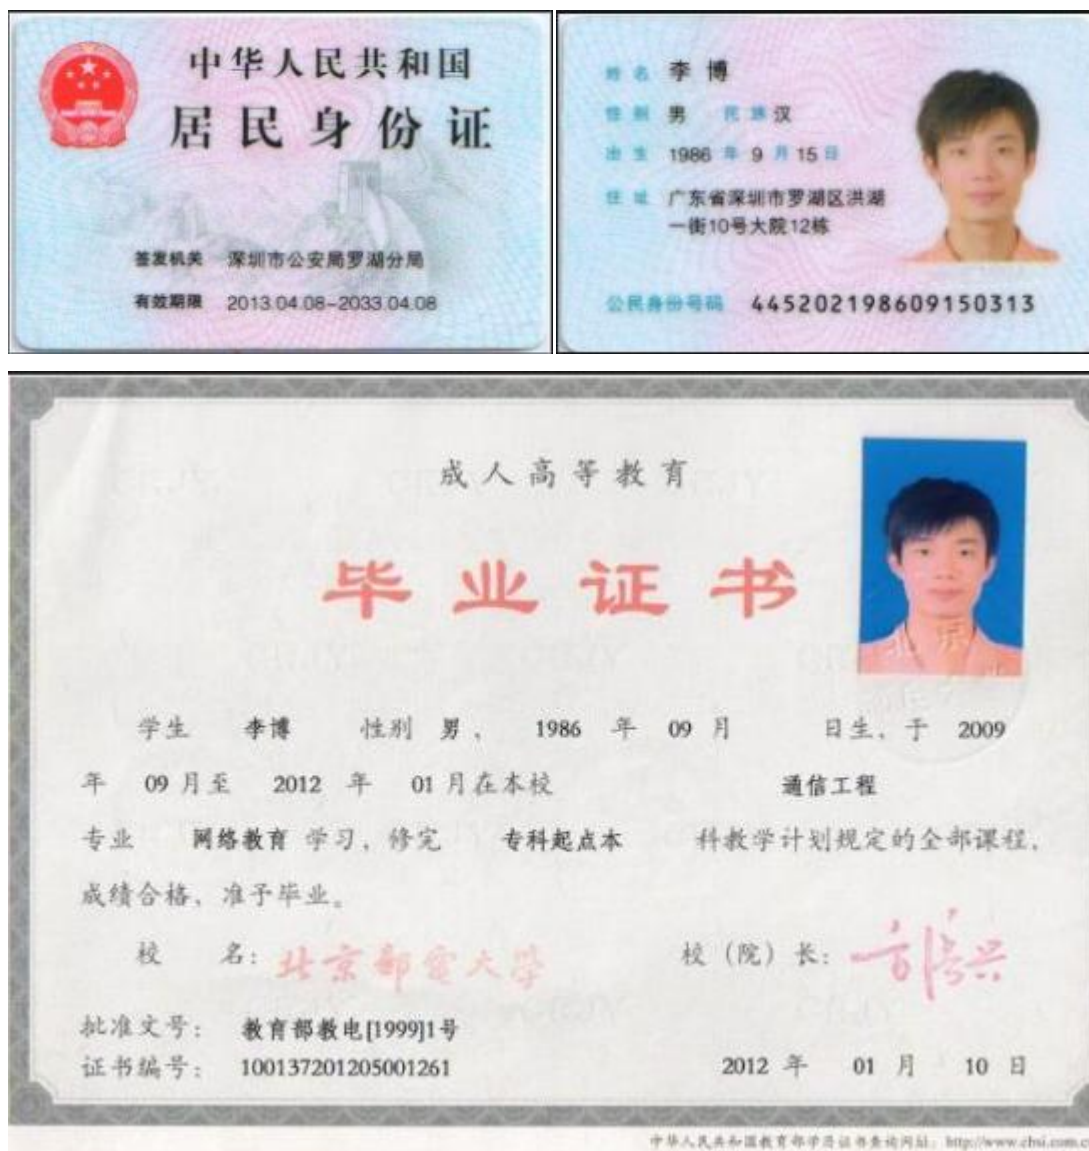 中华人民共和国
居民身份证
签发机关 深圳市公安局罗湖分局
有效期限 2013.04.08-2033.04.08
姓名 李博
性别 男 民族 汉
出生 1986 年 9 月 15 日
住址 广东省深圳市罗湖区洪湖
一街10号大院12栋
公民身份号码 445202198609150313
成人高等教育
毕业证书
学生 李博 性别 男、 1986 年 09 月 日生、于 2009
年 09 月至 2012 年 01 月在本校 通信工程
专业 网络教育 学习，修完 专科起点本 科教学计划规定的全部课程，
成绩合格，准予毕业。
校 名： 北京邮电大学 校（院）长：
批准文号： 教育部教电[1999]1号
证书编号： 100137201205001261 2012 年 01 月 10 日
中华人民共和国教育部学历证书查询网址：http://www.chsi.com.c